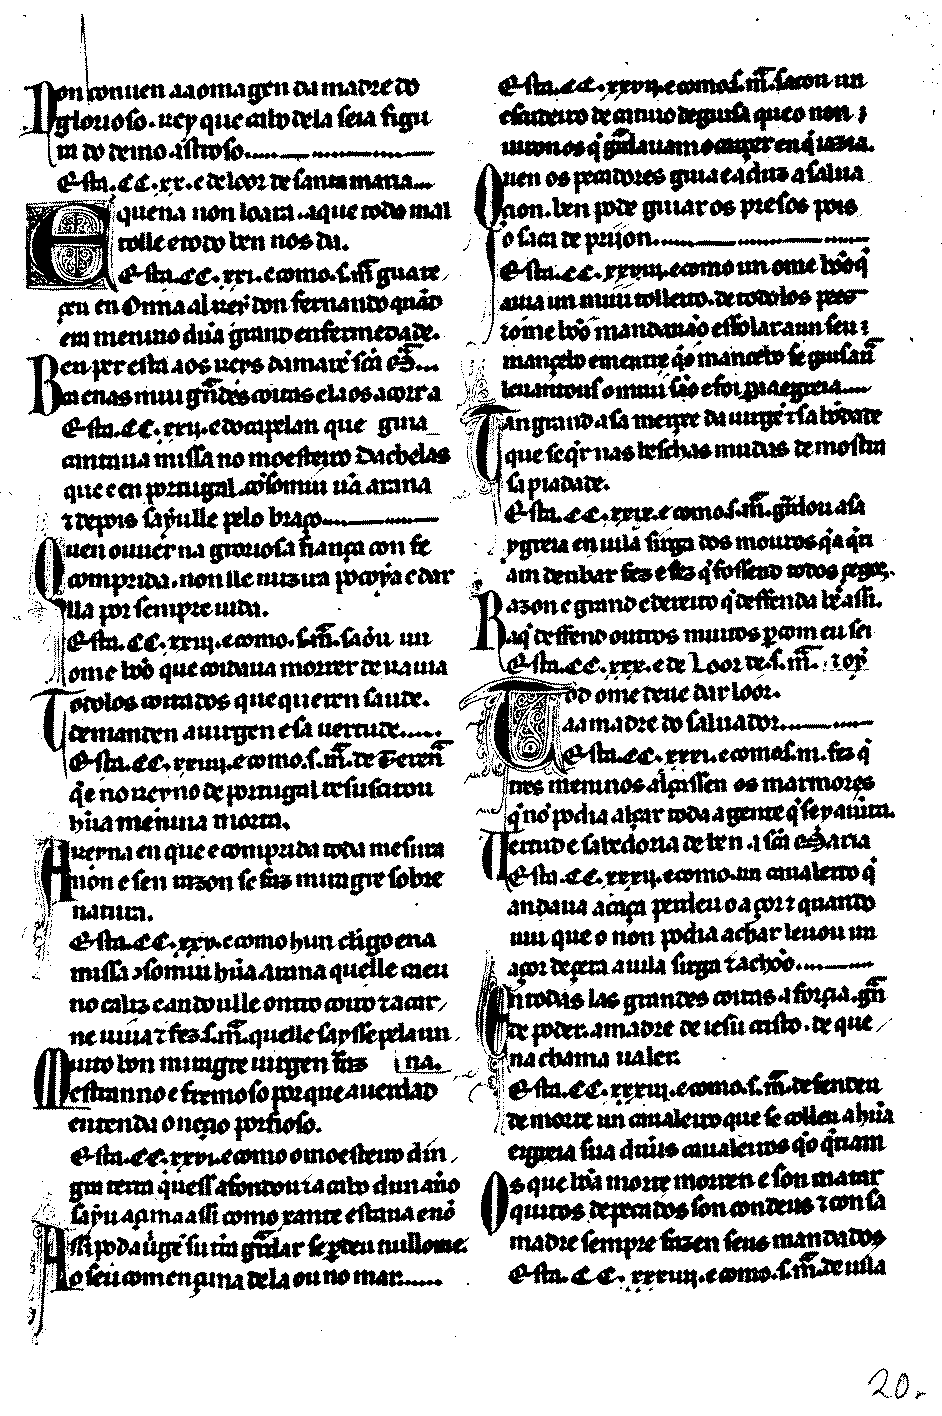 Non conuen aa omagen da madre do
glorioso. rey que cabo dela seia figu
ra do demo astroso
Esta. CC. xx. e de loor de santa maria
E quena non loara. a que todo mal
tolle e todo ben nos da.
Esta. CC. xxi. e como. s. m. guare
çeu en Onna al rey don fernando quãdo
era meninno dũa grand enfermedade.
Ben per esta aos reys damarẽ scã M.
ca enas mui grãdes coitas ela os acorr a
Esta. CC. xxij. e do capelan que gria
cantaua missa no moesteiro Dachelas
que e en portugal. cõsomiu ũa arana
⁊ depois sayulle pelo braço
Quen ouuer na groriosa fiança con fe
comprida. non lle nuzira poçoya e dar
lla por sempre uida.
Esta. CC. xxiij. e como. s. m. saõu un
ome bõo que coidaua morrer de rauia
Todolos coitados que queren saude.
demanden a uirgen e sa uertude
Esta. CC. xxiiij. e como. s. m. de Teren
q̃ e no reyno de portugal resuscitou
hũa meninna morta.
A reynna en que e comprida toda mesura
non e sen razon se faz miragre sobre
natura.
Esta. CC. xxv. e como hun clerigo ena
missa consomiu hũa arana quelle caeu
no caliz e andoulle ontro coiro ⁊ a car
ne uiua ⁊ fez. s. m. quelle saysse pela un
Muito bon miragre uirgen faz na.
estranno e fremoso por que a uerdad
entenda o neçio perfioso.
Esta. CC. xxvi. e como o moesteiro din
gra terra quess afondou ⁊ a cabo dun año
sayu açima assi como xante estaua e nõ
Assi poda uirgẽ su terra guardar se perdeu nullome.
o seu comenpçma dela ou no mar
Esta. CC. xxvij. e como. s. m. sacou un
escudeiro de catiuo de guisa que o non
uironos q̃ guardauam o carçer en q̃ iazia.
Quen os pecadores guia e aduz a salua
çon. ben pode guiar os presos pois
o saca de prijon
Esta. CC. xxviij. e como un ome bõo q̃
auia un muu tolleito. de todolos pees
⁊ ome bõo mandauao esfolar a un seu
mançebo e mentre q̃ o mancebo se guisaua
leuantouss o muu são e foi pera egreia
Tan grand a sa merçee da uirgẽ ⁊ sa bõdade
que se q̃r nas beschas mudas demostra
sa piadade.
Esta. CC. xxix. e como. s. m. guardou a sa
ygreia en uila sirga dos mouros q̃ a q̃ri
am derribar fez e fez q̃ fossend todos çegos.
Razon e grand e dereito q̃ deffenda bẽ assi.
aq̃ deffend outros muitos per com eu sei
Esta. CC. xxx. e de Loor de. s. m.
Tod ome deue dar loor.
aa madre do saluador
Esta. CC. xxxi. e como. s. m. fez q̃
tres meninos alçassen os marmores
q̃ nõ podia alçar toda a gente q̃ se y aiuntaua.
Uertud e sabedoria de ben. a scã Maria
Esta. CC. xxxij. e como. un caualeiro q̃
andaua a caça perdeu o açor ⁊ quando
uiu que o non podia achar leuou un
açor de çera a uila sirga ⁊ achoo
En todas las grandes coitas a força. grã
de poder. a madre de iesu cristo. de que
na chama ualer.
Esta. CC. xxxiij. e como. s. m. defendeu
de morte un caualeiro que se colleu a hũa
eigreia sua duũs caualeiros q̃ o q̃riam
Os que bõa morte morren e son matar
quitos de pecados son con deus ⁊ con sa
madre sempre fazen seus mandados
Esta. CC. xxxiiij. e como. s. m. de uila
20.